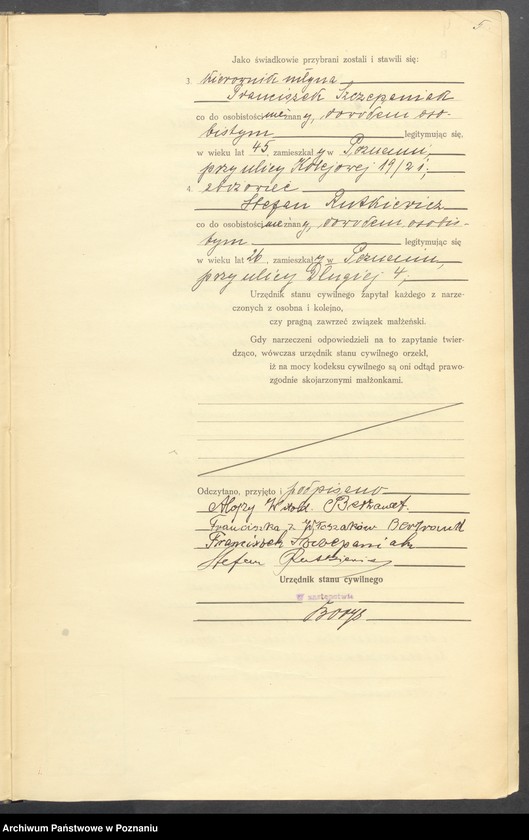 5
Jako świadkowie przybrani zostali i stawili się:
3. kierownik młyna
Franciszek Szczepaniak
co do osobistości nieznany, dowodem oso-
bistym legitymując się,
w wieku lat 45, zamieszkały w Poznaniu,
przy ulicy Kolejowej 19/21;
4. zbożowiec
Stefan Rutkiewicz
co do osobistości nieznany, dowodem osobis-
tym legitymując się
w wieku lat 26, zamieszkały w Poznaniu,
przy ulicy Długiej 4,
Urzędnik stanu cywilnego zapytał każdego z narze-
czonych z osobna i kolejno,
czy pragną zawrzeć związek małżeński.
Gdy narzeczeni odpowiedzieli na to zapytanie twier-
dząco, wówczas urzędnik stanu cywilnego orzekł,
iż na mocy kodeksu cywilnego są oni odtąd prawo-
zgodnie skojarzonymi małżonkami.
Odczytano, przyjęto i podpisano
Alojzy
Franciszka z
Franciszek Szczepaniak
Stefan Rutkiewicz
Urzędnik stanu cywilnego
W zastępstwie
Borys
Archiwum Państwowe w Poznaniu